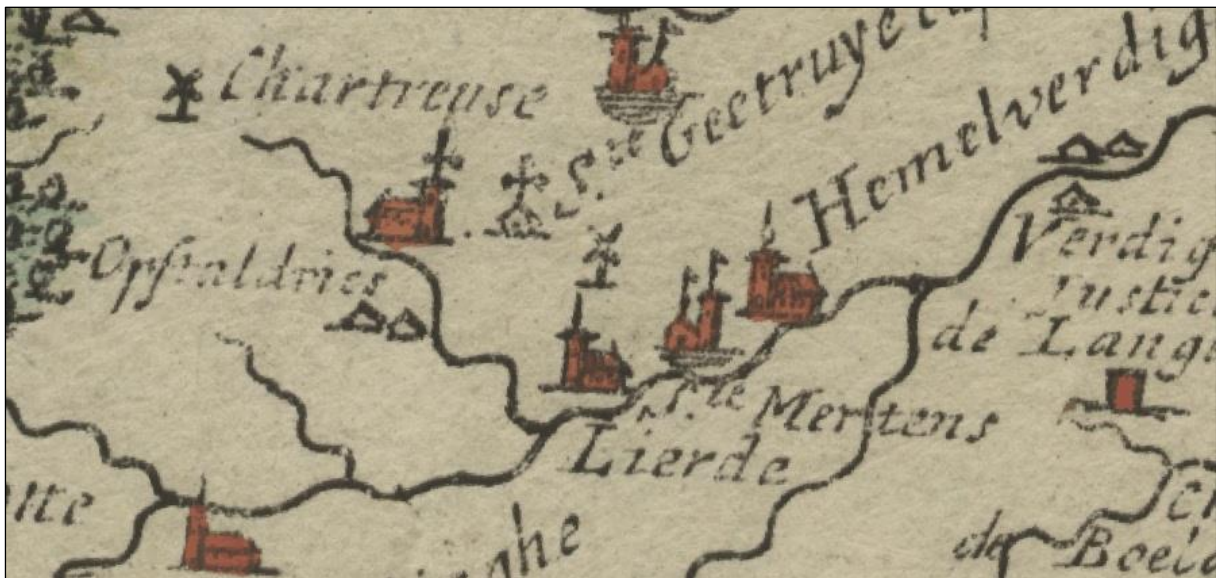 Chartreuse
S.te Geetruye
Hemelverdig
Opstaldries
Verdig
Justic
de Lang
S.te Mertens
Lierde
de Boel